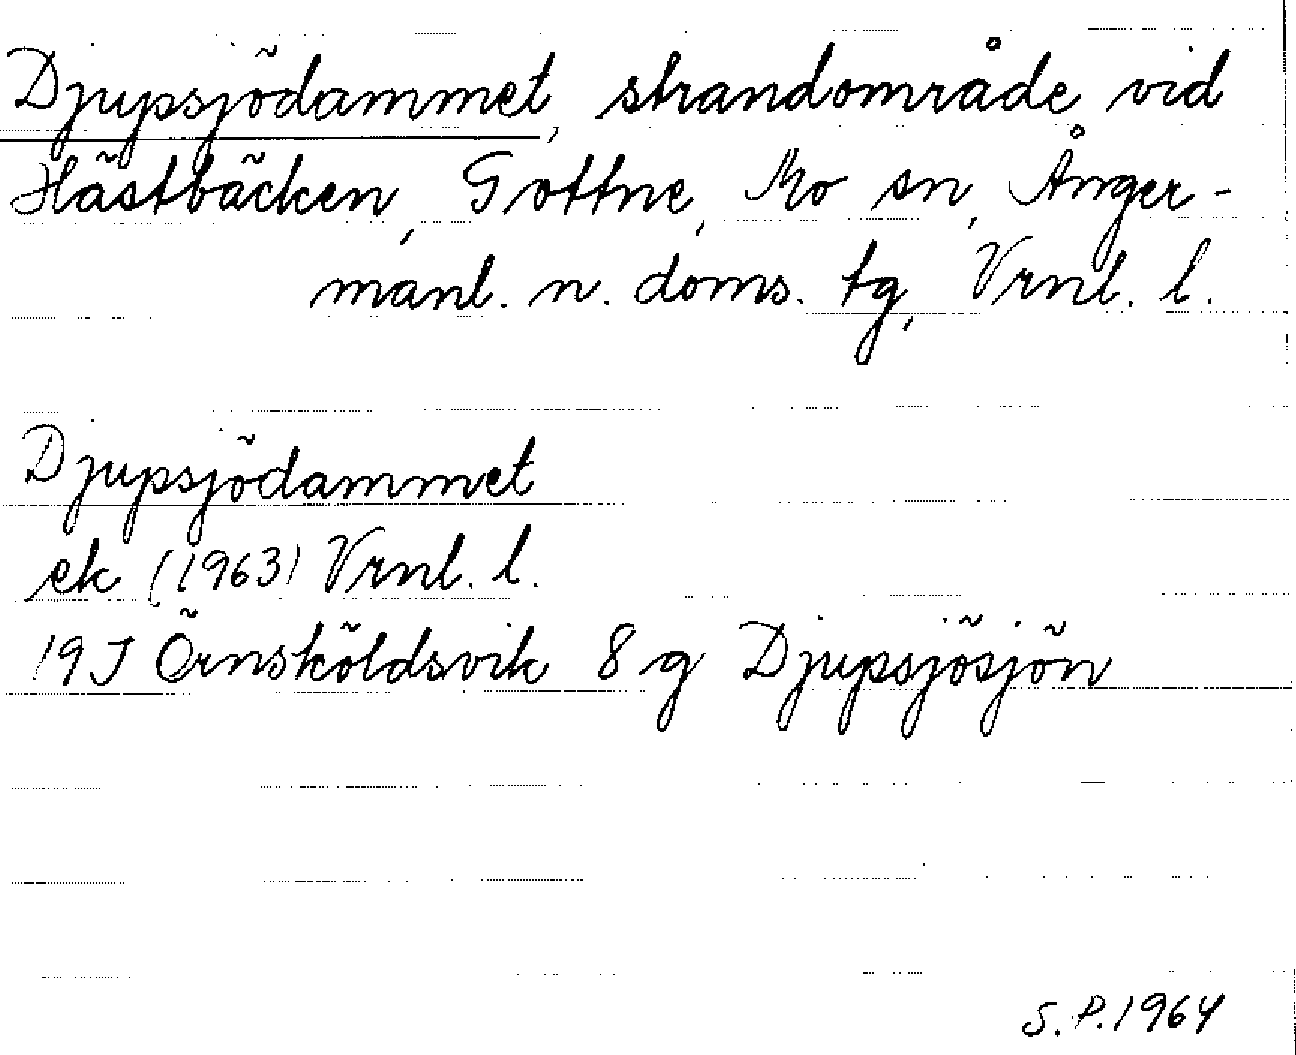 Djupsjödammet, strandområde vid
Hästbäcken, Gottne, Mo sn, Ånger-
manl. n. doms. tg, Vrnl. l.
Djupsjödammet
ek (1963) Vrnl. l.
19J Örnsköldsvik 8g Djupsjösjön
S.P. 1964